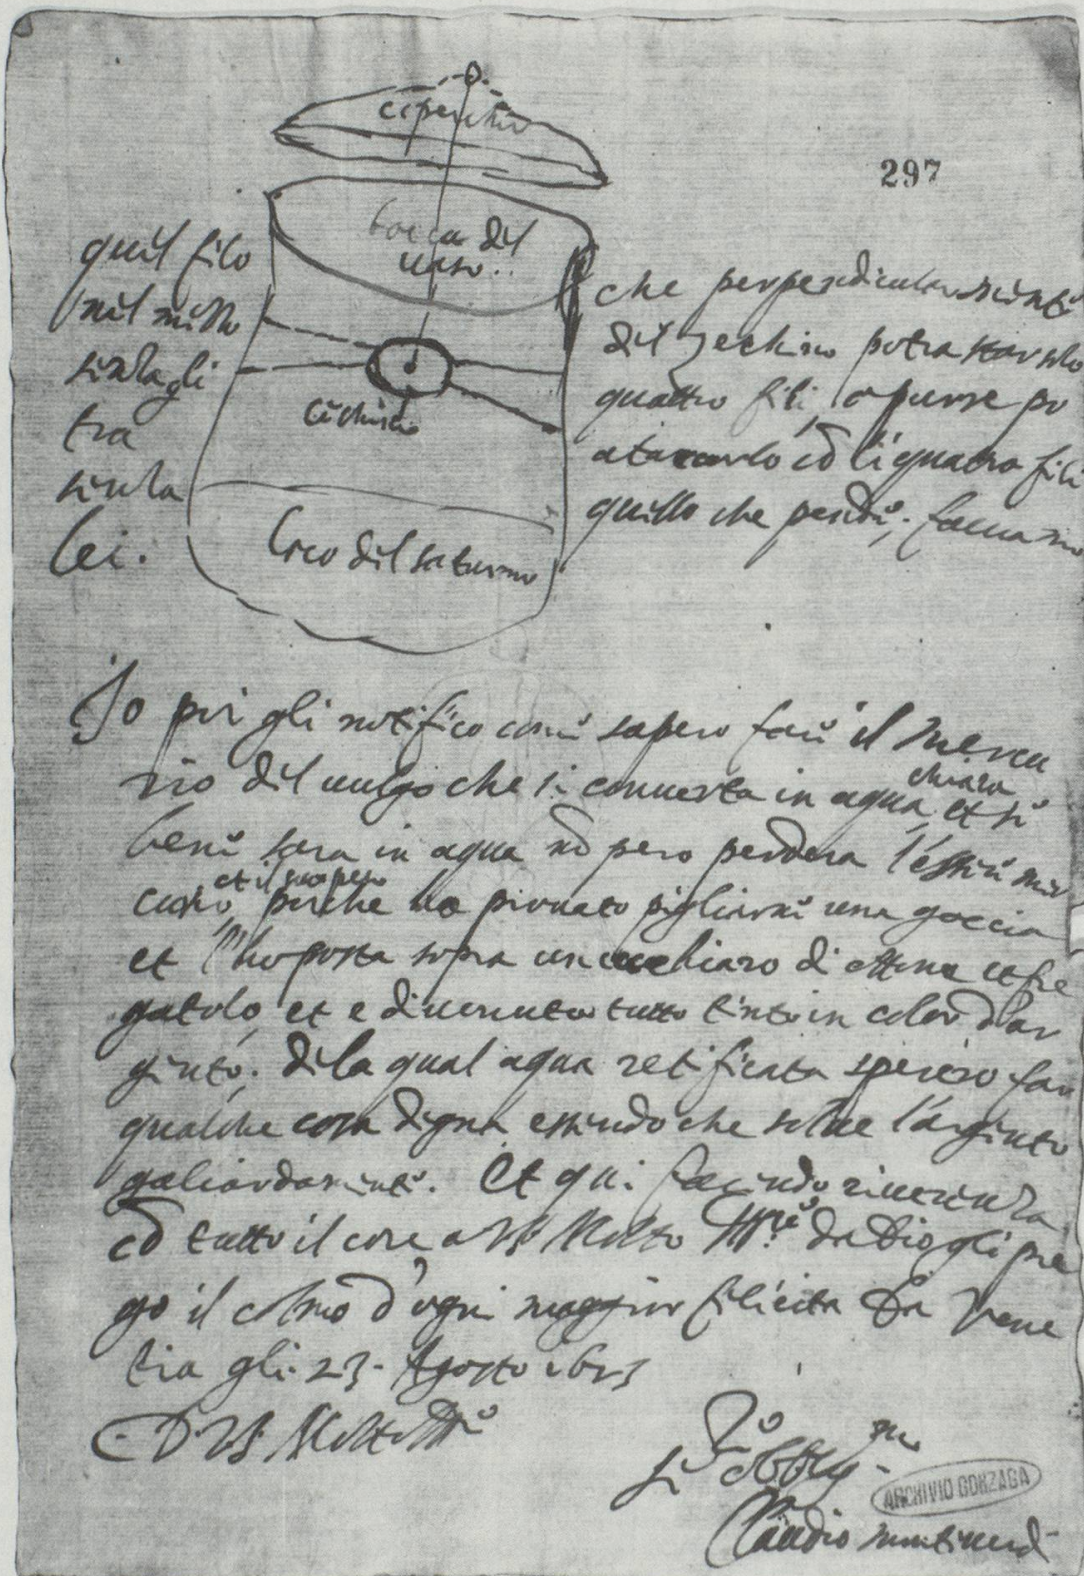 coperchio
297
bocca del
vaso..
quel filo
nel mezzo
senza gli
tra
senza
lei.
cechino
loco del saturno
che perpendicularmente
del zechino potra star solo
quattro fili, o purre po
atacarlo cō li quatro fili
quello che pende; facciamo
Io poi gli notifico come sapero fare il mercu
rio del vulgo che si converta in aqua chiara, et se
bene sara in aqua nō pero perdera l'essere mer
curio, et il suo peso perche ho provato pigliarne una goccia
et l'ho posta sopra un cuchiaro di ottone et fre
gatolo, et e divenuto tutto tinto in color d'ar
gento; de la qual aqua retificata spererò far
qualche cosa degna essendo che solve l'argento
galiardamente. Et qui facendo riverenza
cō tutto il core a V.S. Molto Ill.re da Dio gli pre
go il colmo d'ogni maggior felicita Da Vene
tia gli 23. Agosto 1625
D. V.S. Molto Ill.re
Se.re obblig.mo
ARCHIVIO GONZAGA
Claudio Monteverdi